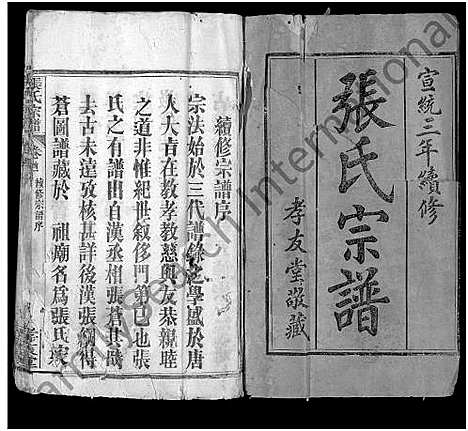 宣統三年續修
張氏宗譜
孝友堂敬藏
續修宗譜序
宗法始於三代譜錄之學盛於唐
人大旨在教孝教慈與友恭親睦
之道非惟紀世叙侈門閥已也張
氏之有譜由自漢丞相張蒼其識
去古未達攷核甚詳後漢張綱得
蒼圖譜藏於 祖廟名為張氏
張氏宗譜 卷首 續修宗譜序
FamilySearch International